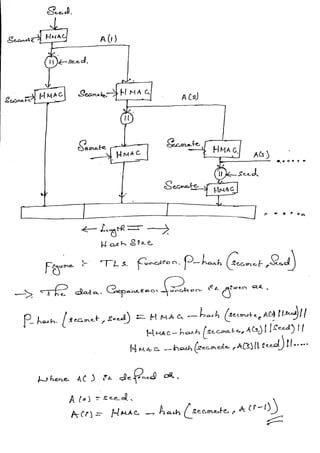 Seed.
Secrete HMAC A(1)
|| seed.
Secrete HMAC Secrete HMAC A(2)
||
Secrete HMAC Secrete HMAC A(3) ......
|| seed
Secrete HMAC
← Length = →
Hash Size
Figure :- TLS function. P-hash (secret, seed)
→ The data. Expansion. function is given as.
P_hash (secret, seed) = HMAC - hash (secrete, A(1) || seed) ||
HMAC - hash (secrete, A(2) || seed) ||
HMAC - hash (secrete, A(3) || seed) || .....
where A( ) is defined as.
A(0) = seed.
A(i) = HMAC - hash (secrete, A(i-1))